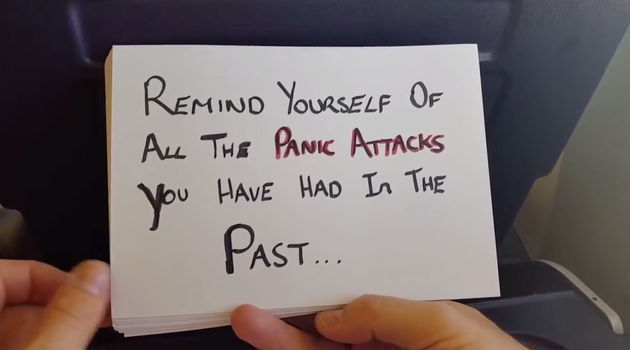 Remind Yourself Of
All The Panic Attacks
You Have Had In The
Past...